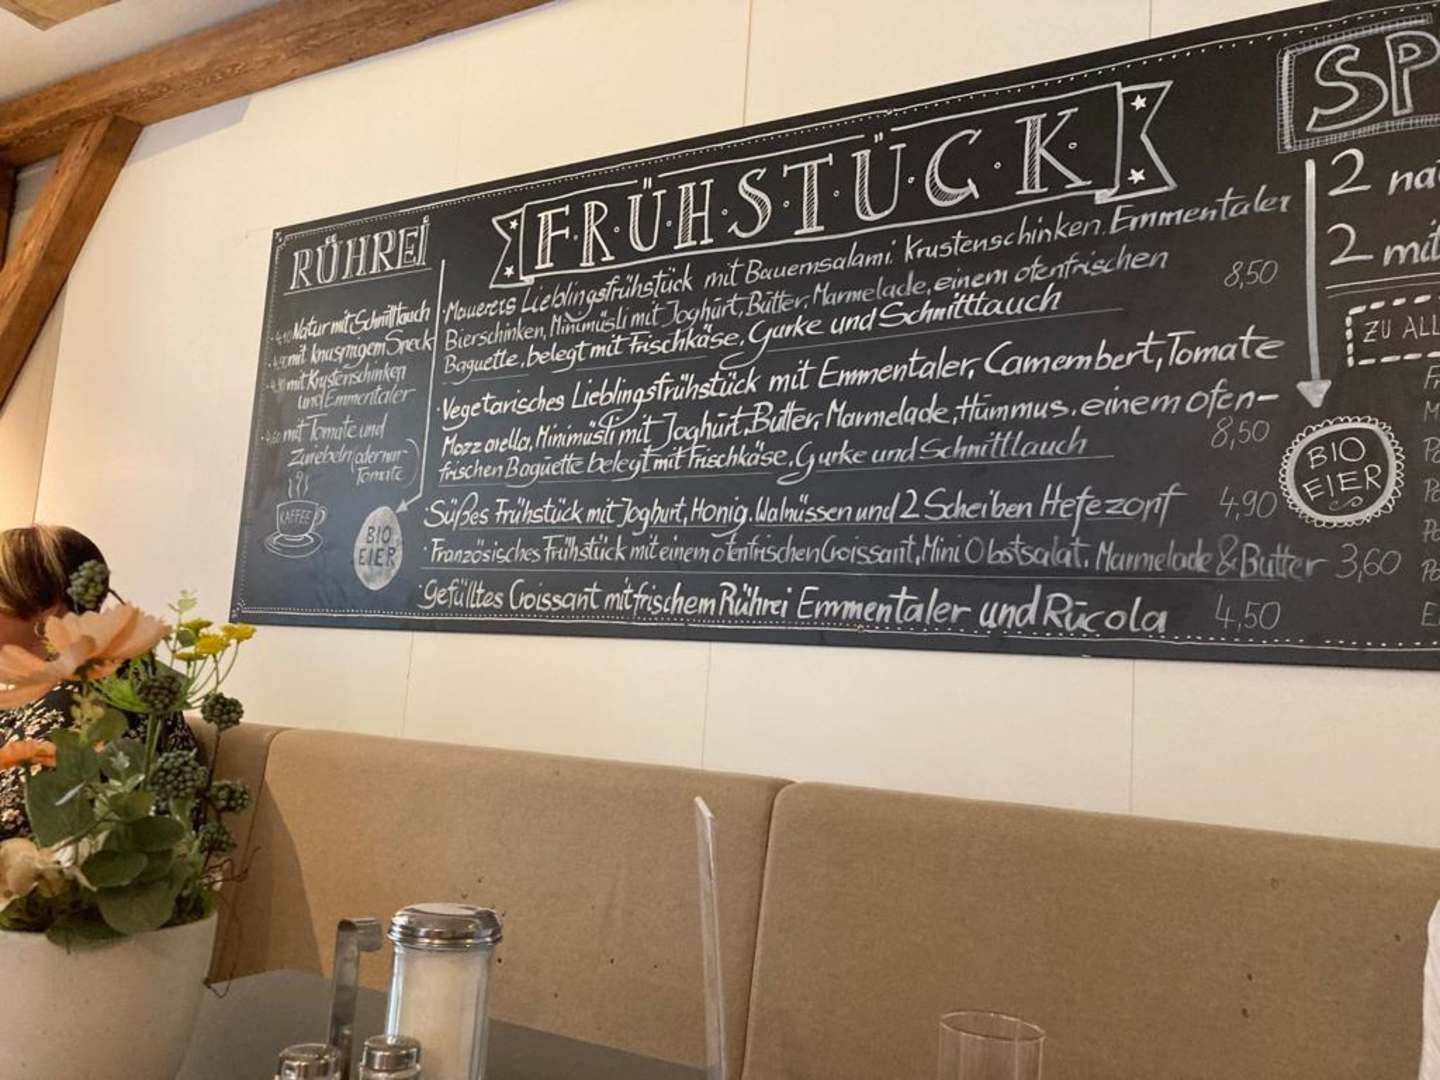 RÜHREI
4,10 Natur mit Schnittlauch
mit knusprigem Speck
mit Krustenschinken
und Emmentaler
mit Tomate und
Zwiebeln oder nur
Tomate
KAFFEE
BIO
EIER
FRÜHSTÜCK
· Mauerers Lieblingsfrühstück mit Bauernsalami, Krustenschinken, Emmentaler
Bierschinken, Minimüsli mit Joghurt, Butter, Marmelade, einem ofenfrischen 8,50
Baguette, belegt mit Frischkäse, Gurke und Schnittlauch
· Vegetarisches Lieblingsfrühstück mit Emmentaler, Camembert, Tomate
Mozzarella, Minimüsli mit Joghurt, Butter, Marmelade, Hummus, einem ofen-
frischen Baguette belegt mit Frischkäse, Gurke und Schnittlauch 8,50
· Süßes Frühstück mit Joghurt, Honig, Walnüssen und 2 Scheiben Hefezopf 4,90
· Französisches Frühstück mit einem ofenfrischen Croissant, Mini Obstsalat, Marmelade & Butter 3,60
· Gefülltes Croissant mit frischem Rührei Emmentaler und Rucola 4,50
SP
2 na
2 mit
ZU ALL
BIO
EIER